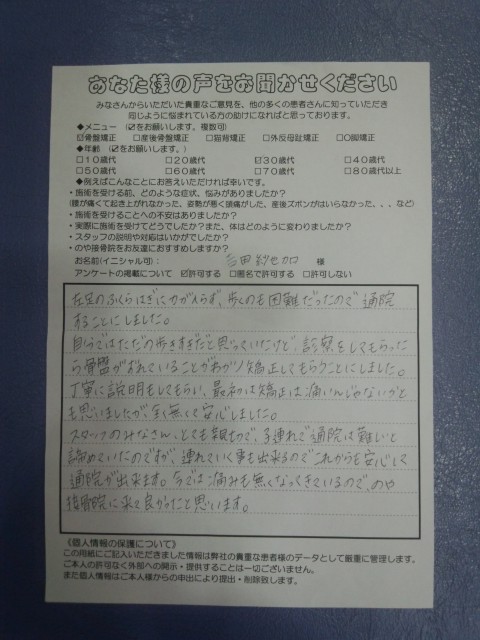 あなた様の声をお聞かせください
みなさんからいただいた貴重なご意見を、他の多くの患者さんに知っていただき
同じように悩まれている方の助けになればと思っております。
◆メニュー（☑をお願いします。複数可）
☑骨盤矯正 □産後骨盤矯正 □猫背矯正 □外反母趾矯正 □O脚矯正
◆年齢（☑をお願いします。）
□10歳代 □20歳代 ☑30歳代 □40歳代
□50歳代 □60歳代 □70歳代 □80歳代以上
◆例えばこんなことにお答えいただければ幸いです。
・施術を受ける前、どのような症状、悩みがありましたか？
（腰が痛くて起き上がれなかった、姿勢が悪く頭痛がした、産後ズボンがはいらなかった、、、など）
・施術を受けることへの不安はありましたか？
・実際に施術を受けてどうでしたか？また、体はどのように変わりましたか？
・スタッフの説明や対応はいかがでしたか？
・のや接骨院をお友達におすすめしますか？
お名前（イニシャル可）： 様
アンケートの掲載について ☑許可する □匿名で許可する □許可しない
左足のふくらはぎに力が入らず、歩くのも困難だったので通院
することにしました。
自分ではただの歩きすぎだと思っていたけど、診察をしてもらった
ら骨盤がずれていることがわかり矯正してもらうことにしました。
丁寧に説明もしてもらい、最初は矯正は痛いんじゃないかと
も思いましたが、全く無くて安心しました。
スタッフのみなさん、とても親切で、子連れで通院は難しいと
諦めていたのですが、連れていく事も出来るのでこれからも安心して
通院が出来ます。今では痛みも無くなってきているので、のや
接骨院に来て良かったと思います。
《個人情報の保護について》
この用紙にご記入いただきました情報は弊社の貴重な患者様のデータとして厳重に管理します。
ご本人の許可なく外部への開示・提供することは一切ございません。
また個人情報はご本人様からの申出により提出・削除致します。